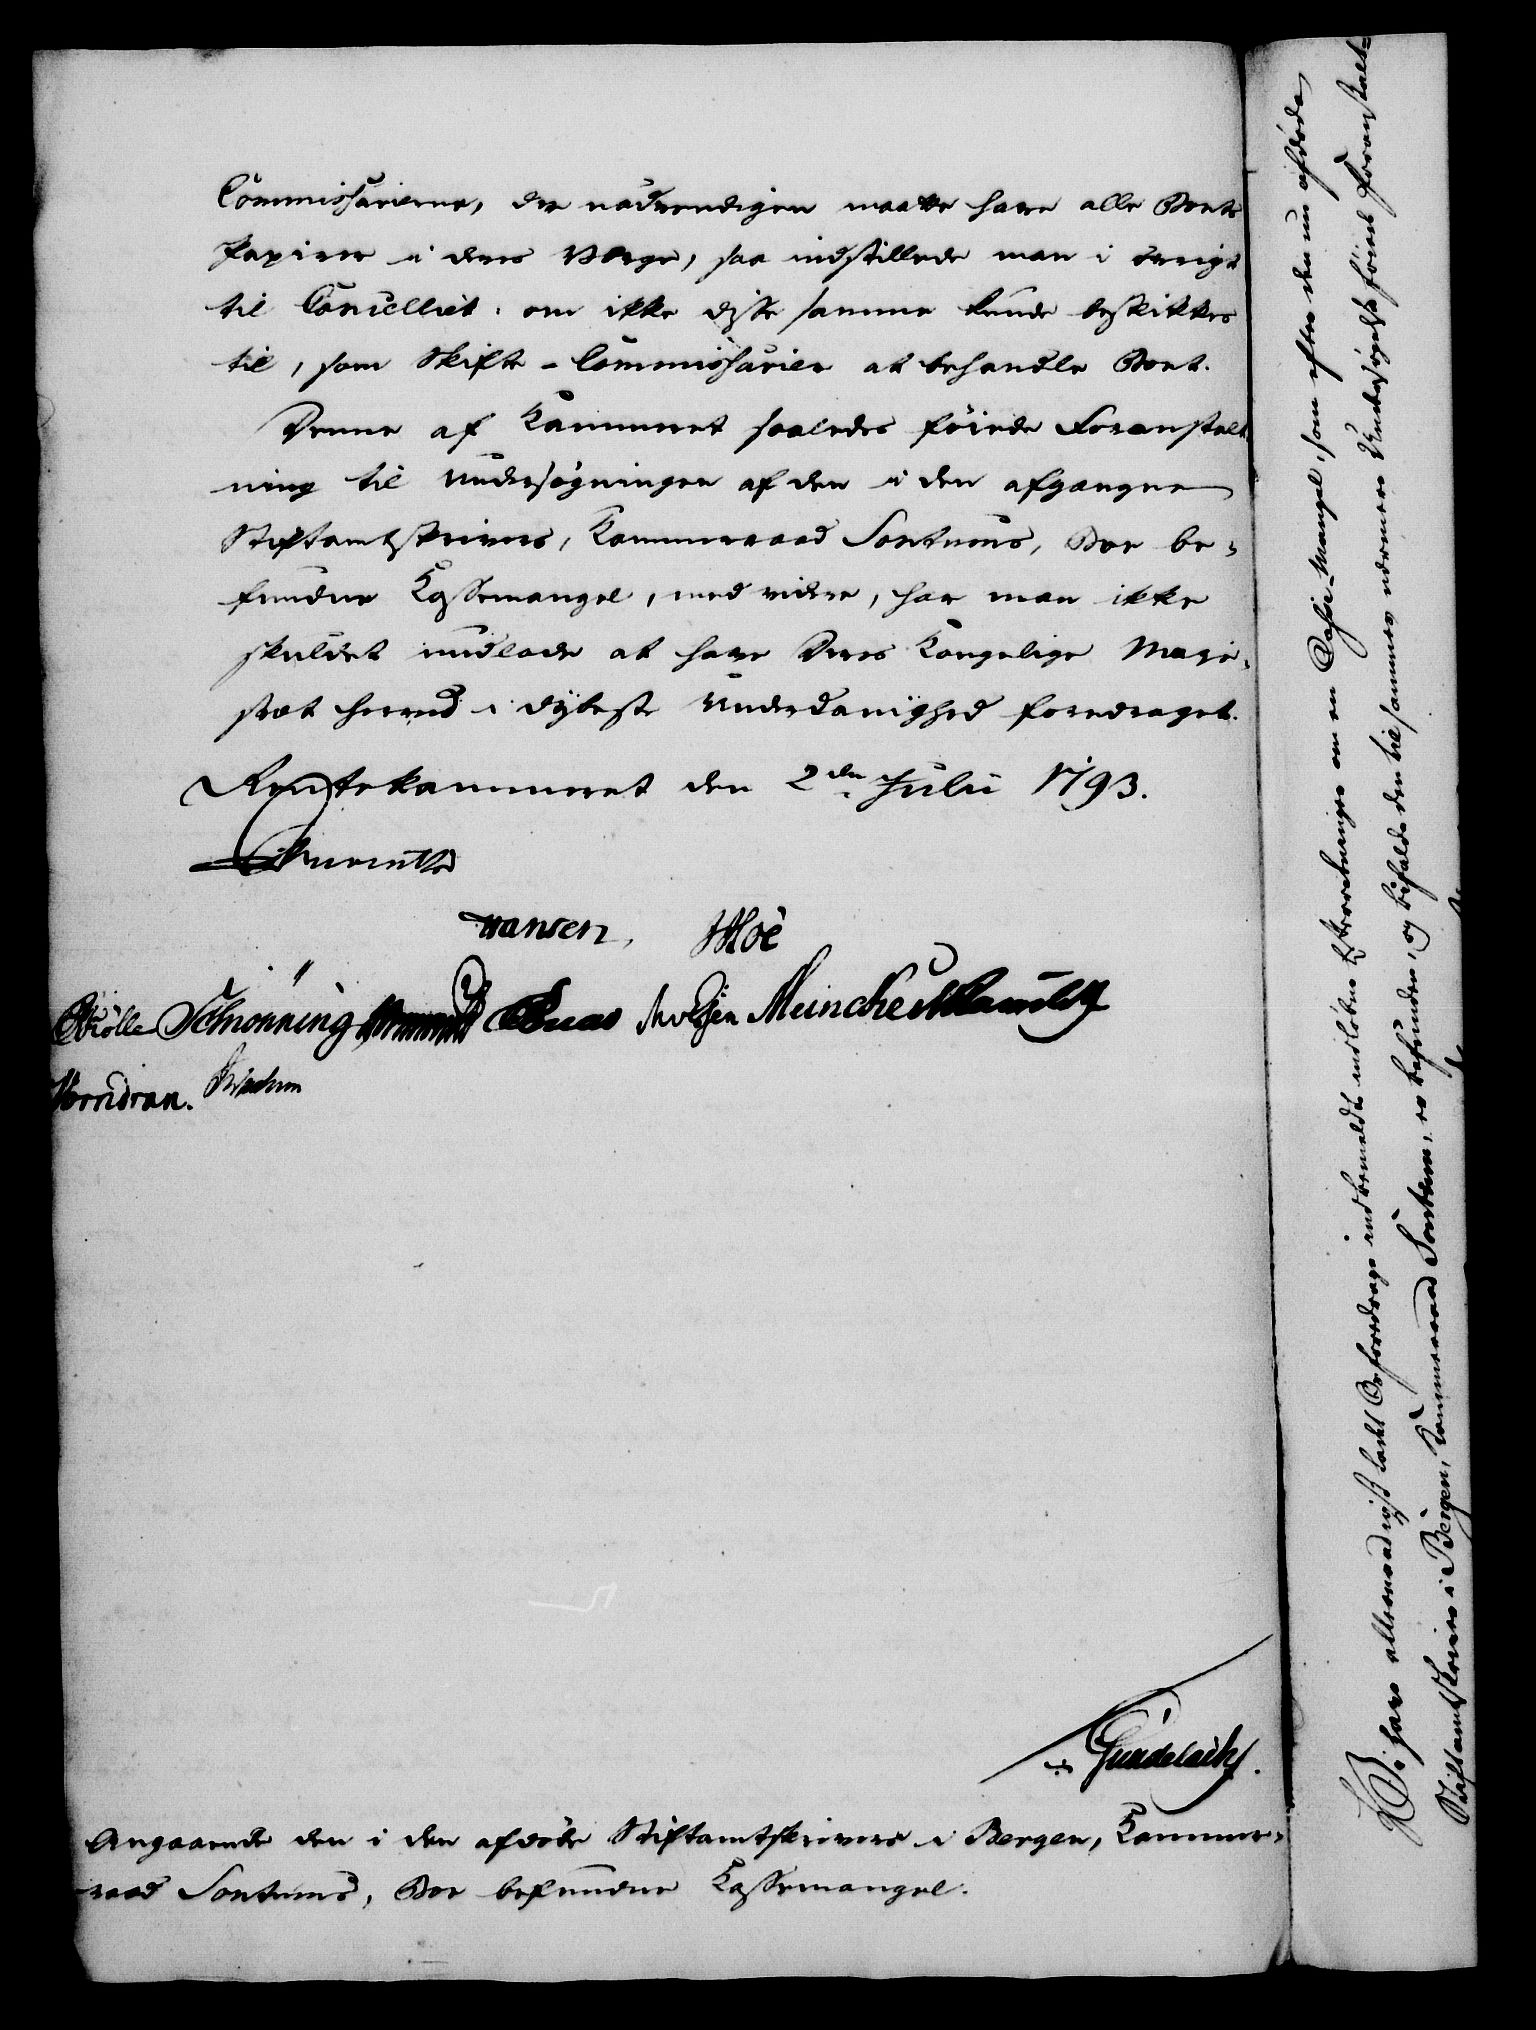 Commissarierne, der nødvendigen maatte have alle Boets
Papirer i deres Værge, saa indstillede man i øvrigt
til Cancelliet, om ikke disse samme kunde beskikkes
til, som Skifte-Commissarier at behandle Boet.
Denne af Kammeret saaledes føiede Foranstalt
ning til Undersøgningen af den i den afgangne
Stiftamtskrivers, Kammerraad Sontums, Boe be-
fundne Kassemangel, med videre, har man ikke
skuldet undlade at have Deres Kongelige Maje-
stæt herved i dybeste Underdanighed foredraget.
Rentekammeret den 2den Julii 1793.
Hansen, Moe
Schønning Meincke
Gundelach.
Angaaende den i den afdøde Stiftamtskrivers i Bergen, Kammer-
raad Sontums, Boe befundne Kassemangel.
Vi have allernaadigst ladet Os foredrage indbemeldte indløbne Efterretninger om en Casse-Mangel, som efter den nu afdøde
Stiftamtskriver i Bergen, Kammerraad Sontum, er befunden, og bifalde den til sammes nærmere Undersøgelse føiede Foranstalt-